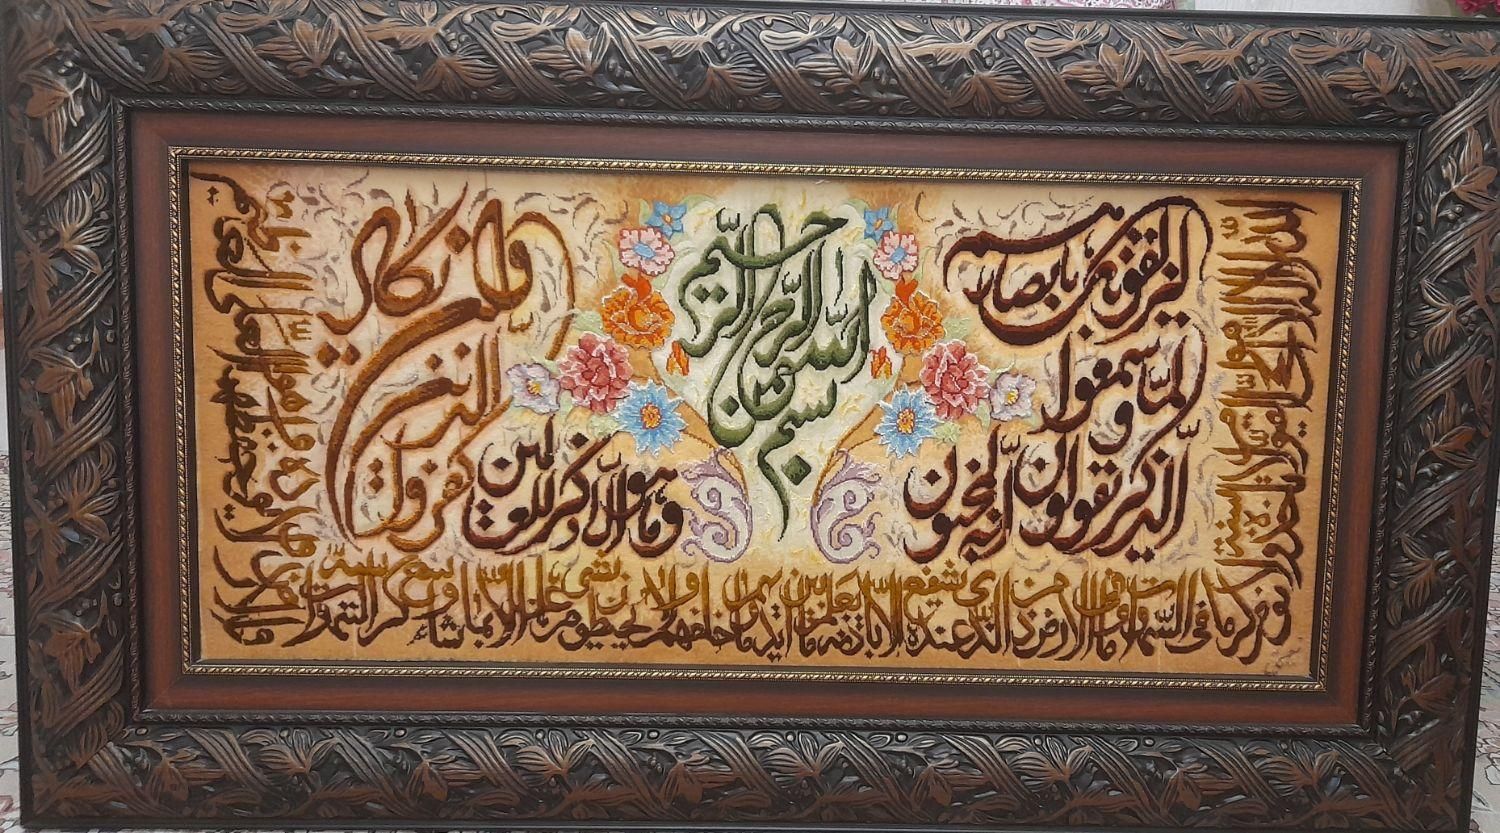 بسم الله الرحمن الرحیم
وان یکاد
الذین
کفروا
لیزلقونک بابصارهم
لما سمعوا
الذکر و یقولون انه لمجنون
و ما هو الا ذکر للعالمین
الله لا اله الا هو الحی القیوم لا تاخذه سنة و لا
نوم له ما فی السموات و ما فی الارض من ذا الذی یشفع عنده الا باذنه یعلم ما بین ایدیهم و ما خلفهم و لا یحیطون بشی من علمه الا بما شاء وسع کرسیه السموات
والارض و لا یوده حفظهما و هو العلی العظیم